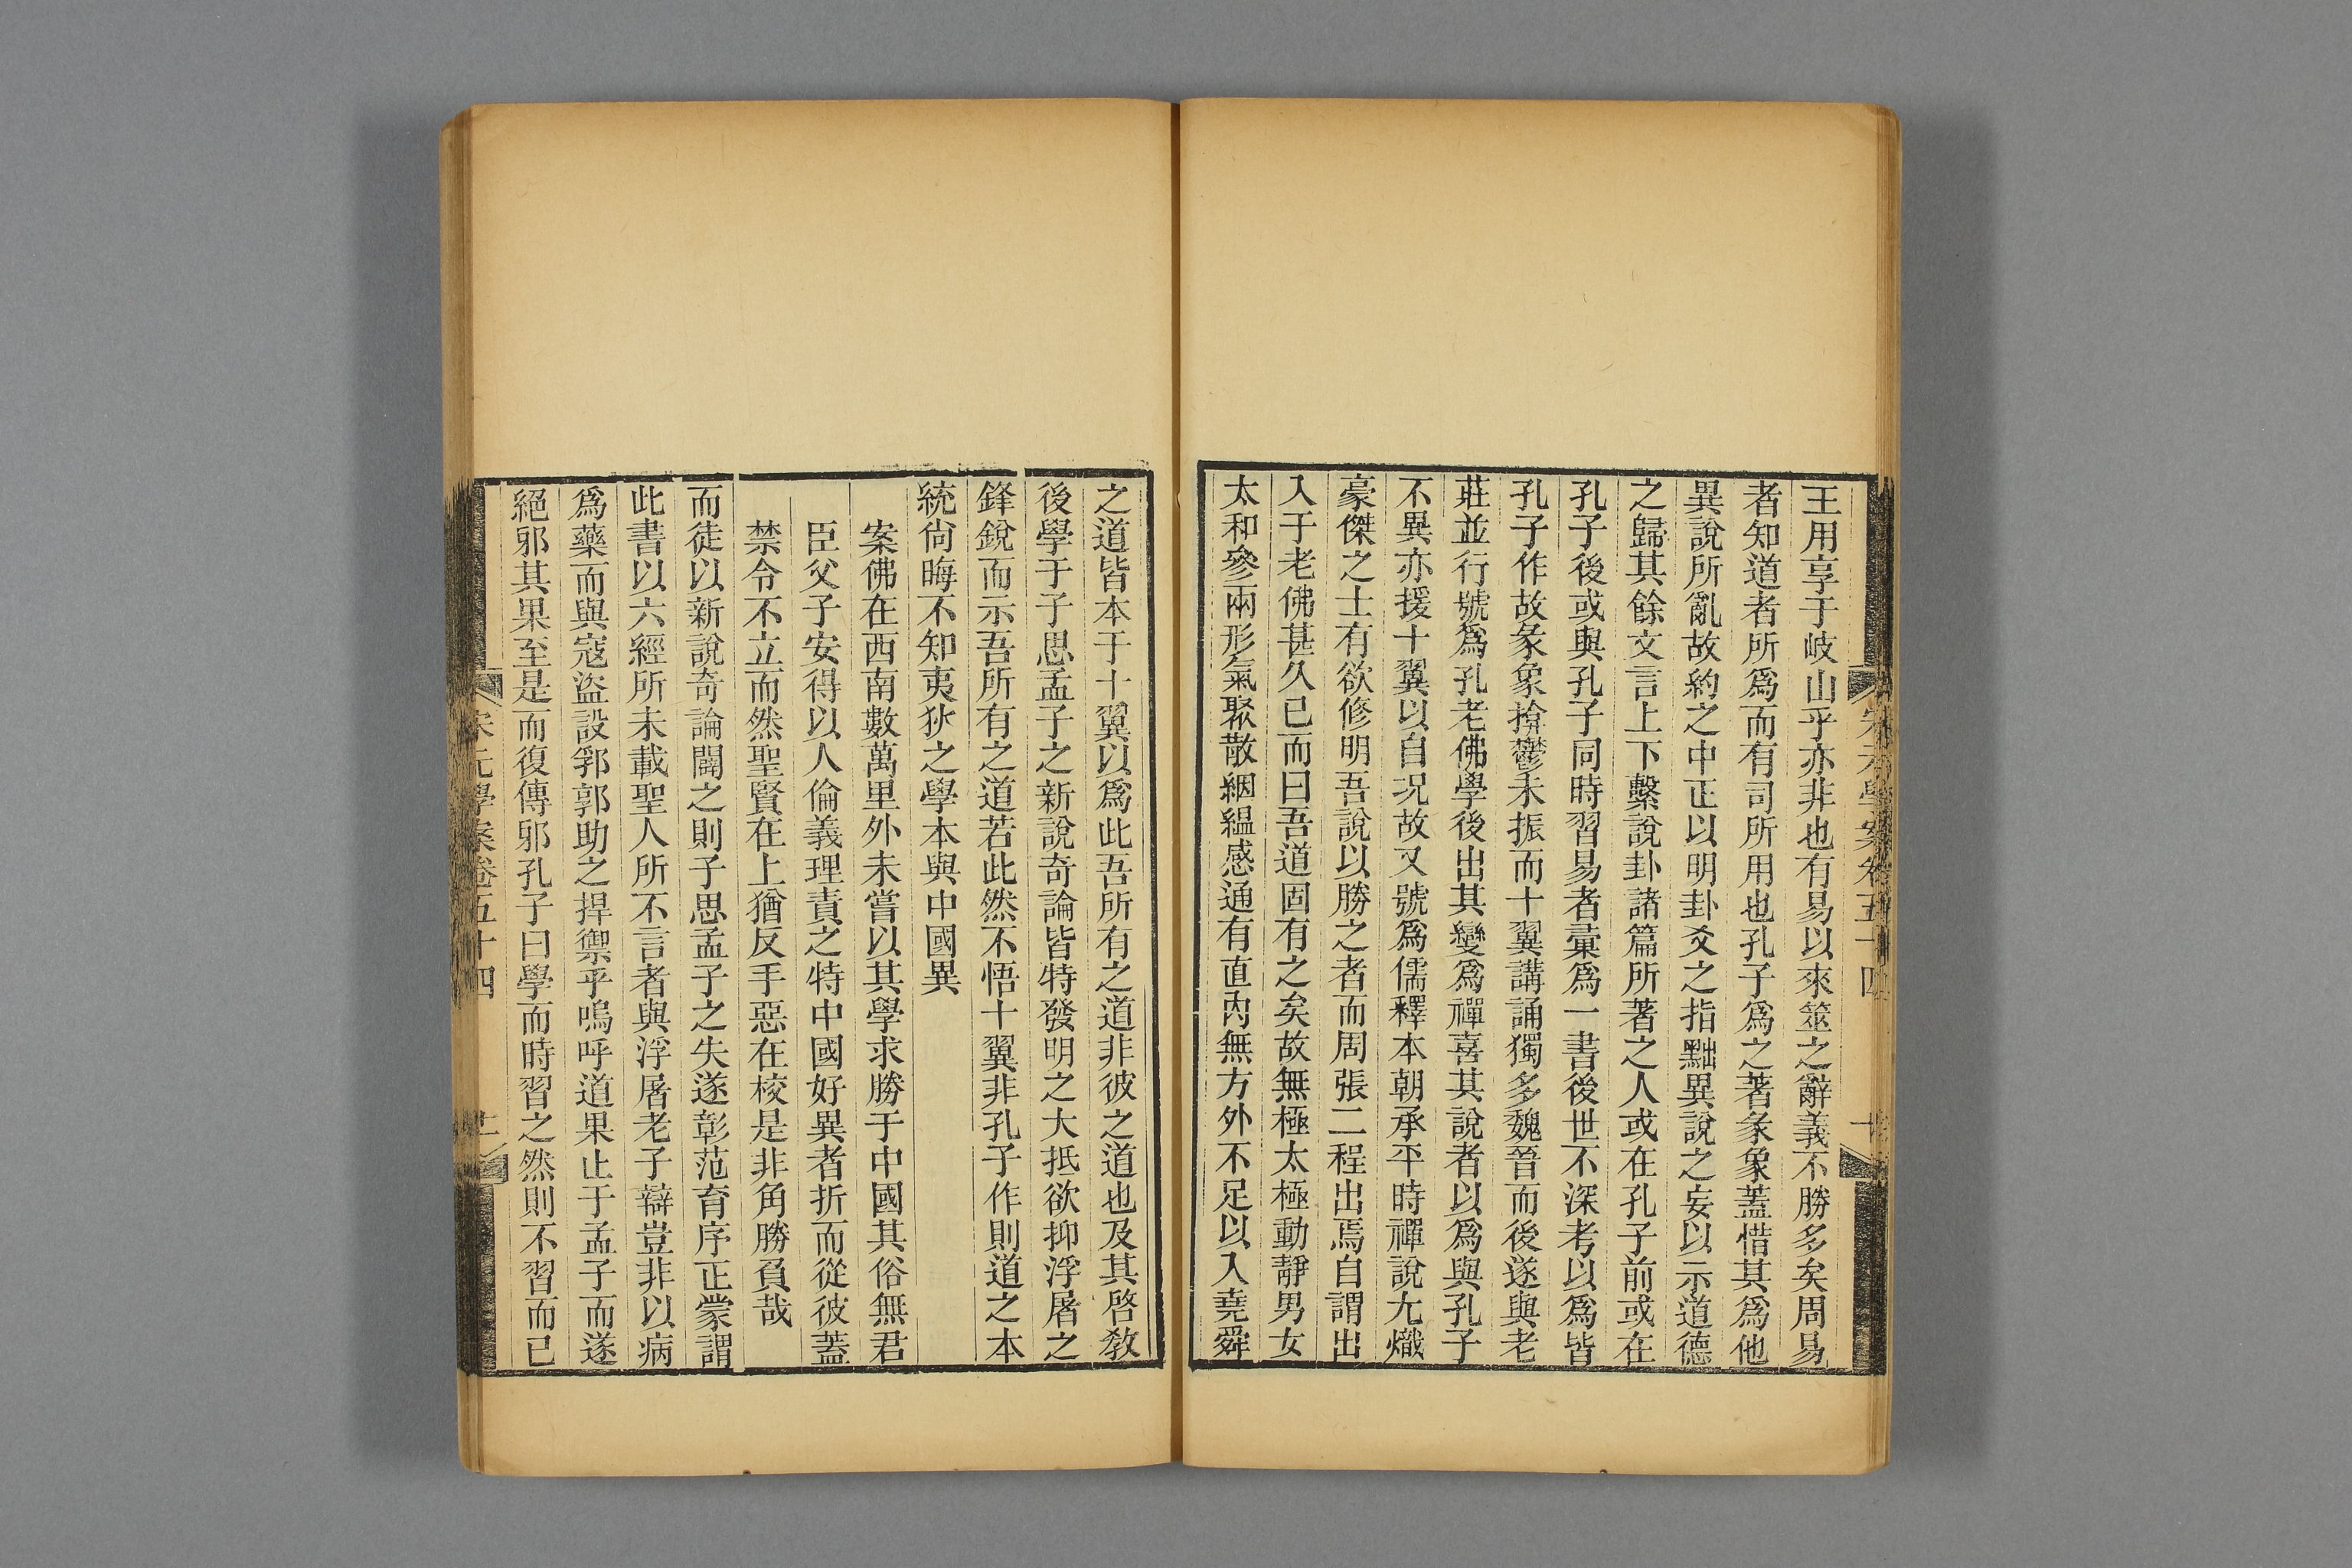 王用享于岐山乎亦非也有易以來筮之辭義不勝多矣周易
者知道者所爲而有司所用也孔子爲之著彖象蓋惜其爲他
異說所亂故約之中正以明卦爻之指黜異說之妄以示道德
之歸其餘文言上下繫說卦諸篇所著之人或在孔子前或在
孔子後或與孔子同時習易者彙爲一書後世不深考以爲皆
孔子作故彖象揜鬱未振而十翼講誦獨多魏晉而後遂與老
莊並行號爲孔老佛學後出其變爲禪喜其說者以爲與孔子
不異亦援十翼以自況故又號爲儒釋本朝承平時禪說尢熾
豪傑之士有欲修明吾說以勝之者而周張二程出焉自謂出
入于老佛甚久已而曰吾道固有之矣故無極太極動靜男女
太和參兩形氣聚散絪縕感通有直內無方外不足以入堯舜
之道皆本于十翼以爲此吾所有之道非彼之道也及其啓敎
後學于子思孟子之新說奇論皆特發明之大抵欲抑浮屠之
鋒銳而示吾所有之道若此然不悟十翼非孔子作則道之本
統尙晦不知夷狄之學本與中國異
案佛在西南數萬里外未嘗以其學求勝于中國其俗無君
臣父子安得以人倫義理責之特中國好異者折而從彼蓋
禁令不立而然聖賢在上猶反手惡在校是非角勝負哉
而徒以新說奇論闢之則子思孟子之失遂彰范育序正蒙謂
此書以六經所未載聖人所不言者與浮屠老子辯豈非以病
爲藥而與寇盜設郛郭助之捍禦乎嗚呼道果止于孟子而遂
絕邪其果至是而復傳邪孔子曰學而時習之然則不習而已
宋元學案卷五十四